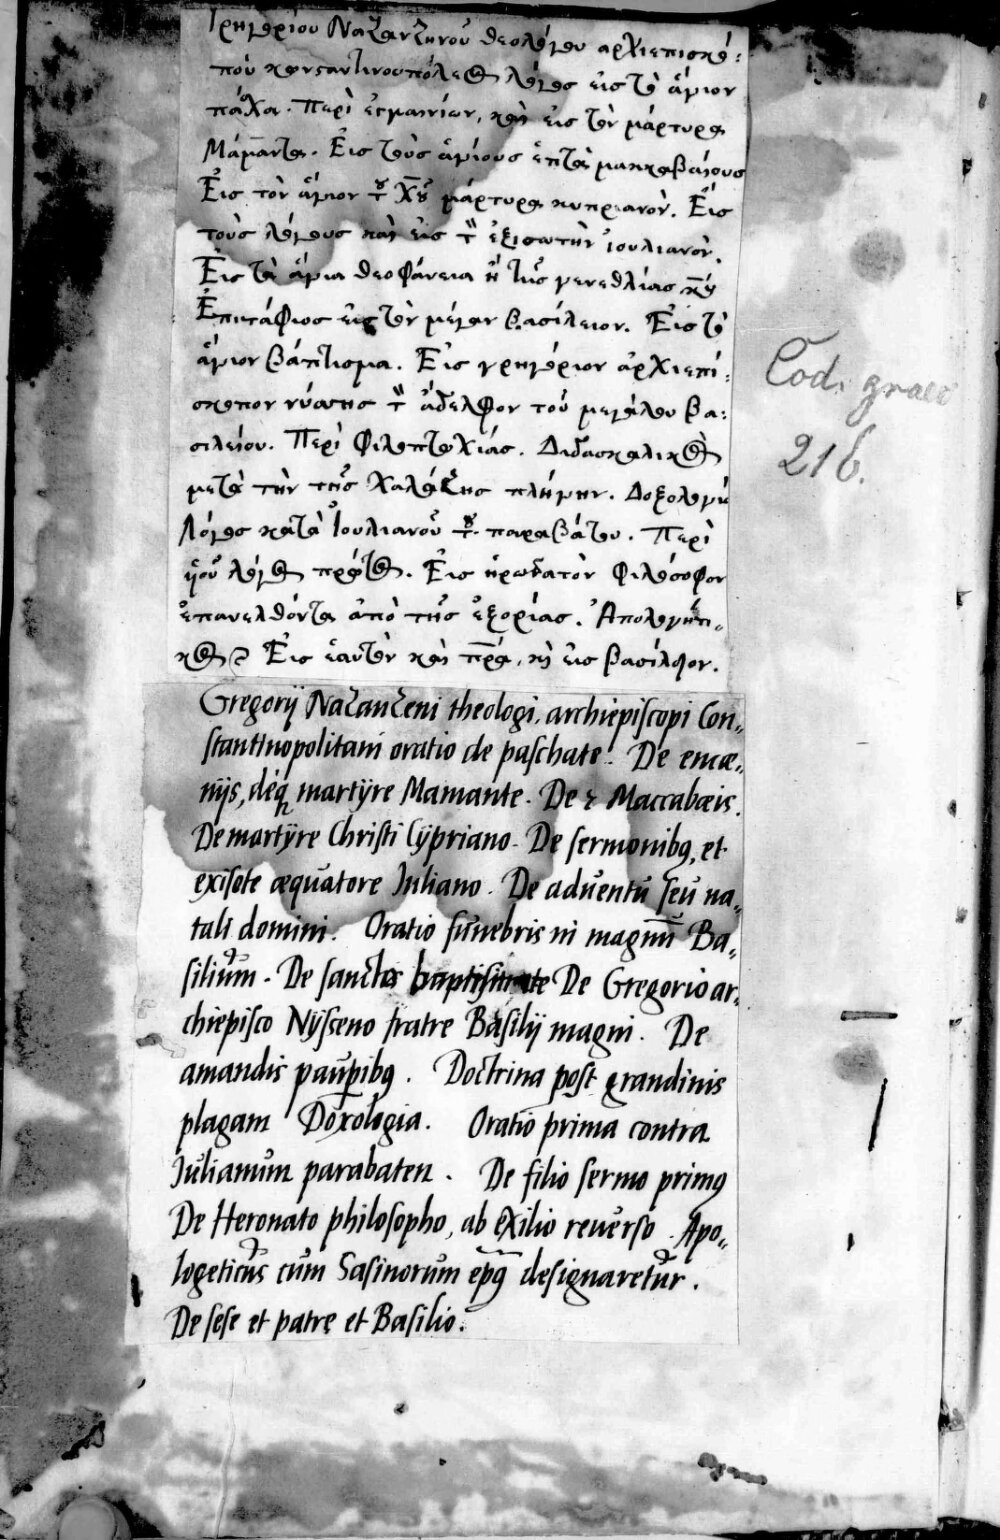 Γρηγορίου Ναζανζηνοῦ θεολόγου αρχιεπισκό:
που κωνσαντινουπόλεως λόγος εις τὸ ἅγιον
πάχα. Περὶ ἐγκαινίων, καὶ εἰς τὸν μάρτυρα
Μάμαντα. Εἰς τοὺς ἁγίους ἑπτὰ μακκαβαίους
Εἰς τὸν ἅγιον τ Χῦ μάρτυρα κυπριανὸν. Εἰς
τοὺς λόγους καὶ εἰς τ ἐξισωτὴν ἰουλιανὸν.
Εἰς τὰ ἅγια θεοφάνεια ἢ τῆς γενεθλίας
Ἐπιτάφιος εἰς τὸν μέγαν βασίλειον. Εἰς τὸ
ἅγιον βάπτισμα. Εἰς γρηγόριον ἀρχιεπί:
σκοπον νύσσης τ ἀδελφον τοῦ μεγάλου βα:
σιλείου. Περὶ φιλοπτωχίας. Διδασκαλικὸς
μετὰ τὴν τῆς χαλάζης πλήγην. Δοξολογι
Λόγος κατὰ Ἰουλιανοῦ τ παραβάτου. Περὶ
ὑιοῦ λόγος πρῶτος. Εις ἡρωνατὸν φιλόσοφον
ἐπανελθόντα ἀπὸ τῆς ἐξορίας. Ἀπολογητι,,
κὸς Εἰς ἑαυτὸν καὶ πρα, κὴ εἰς βασίλειον.
Gregorij Nazanzeni theologi, archiepiscopi Con„
stantinopolitani oratio de paschate. De encæ„
nijs, déq martÿre Mamante. De 7 Maccabæis.
De martÿre Christi Cÿpriano. De sermonibꝫ, et
exisote æquatore Iuliano. De aduentu seu na„
tali domini. Oratio funebris in magnū Ba„
silium. De sancto baptismate De Gregorio ar„
chiepisco Nÿsceno fratre Basilij magni. De
amandis pauꝑibꝫ. Doctrina post grandinis
plagam Doxologia. Oratio prima contra
Iulianum parabaten. De filio sermo primꝰ
De Heronato philosopho, ab exilio reuerso. Apo„
logeticus cum Sasinorum ep̄q designaretur.
De sese et patre et Basilio.
Cod. graec
216.